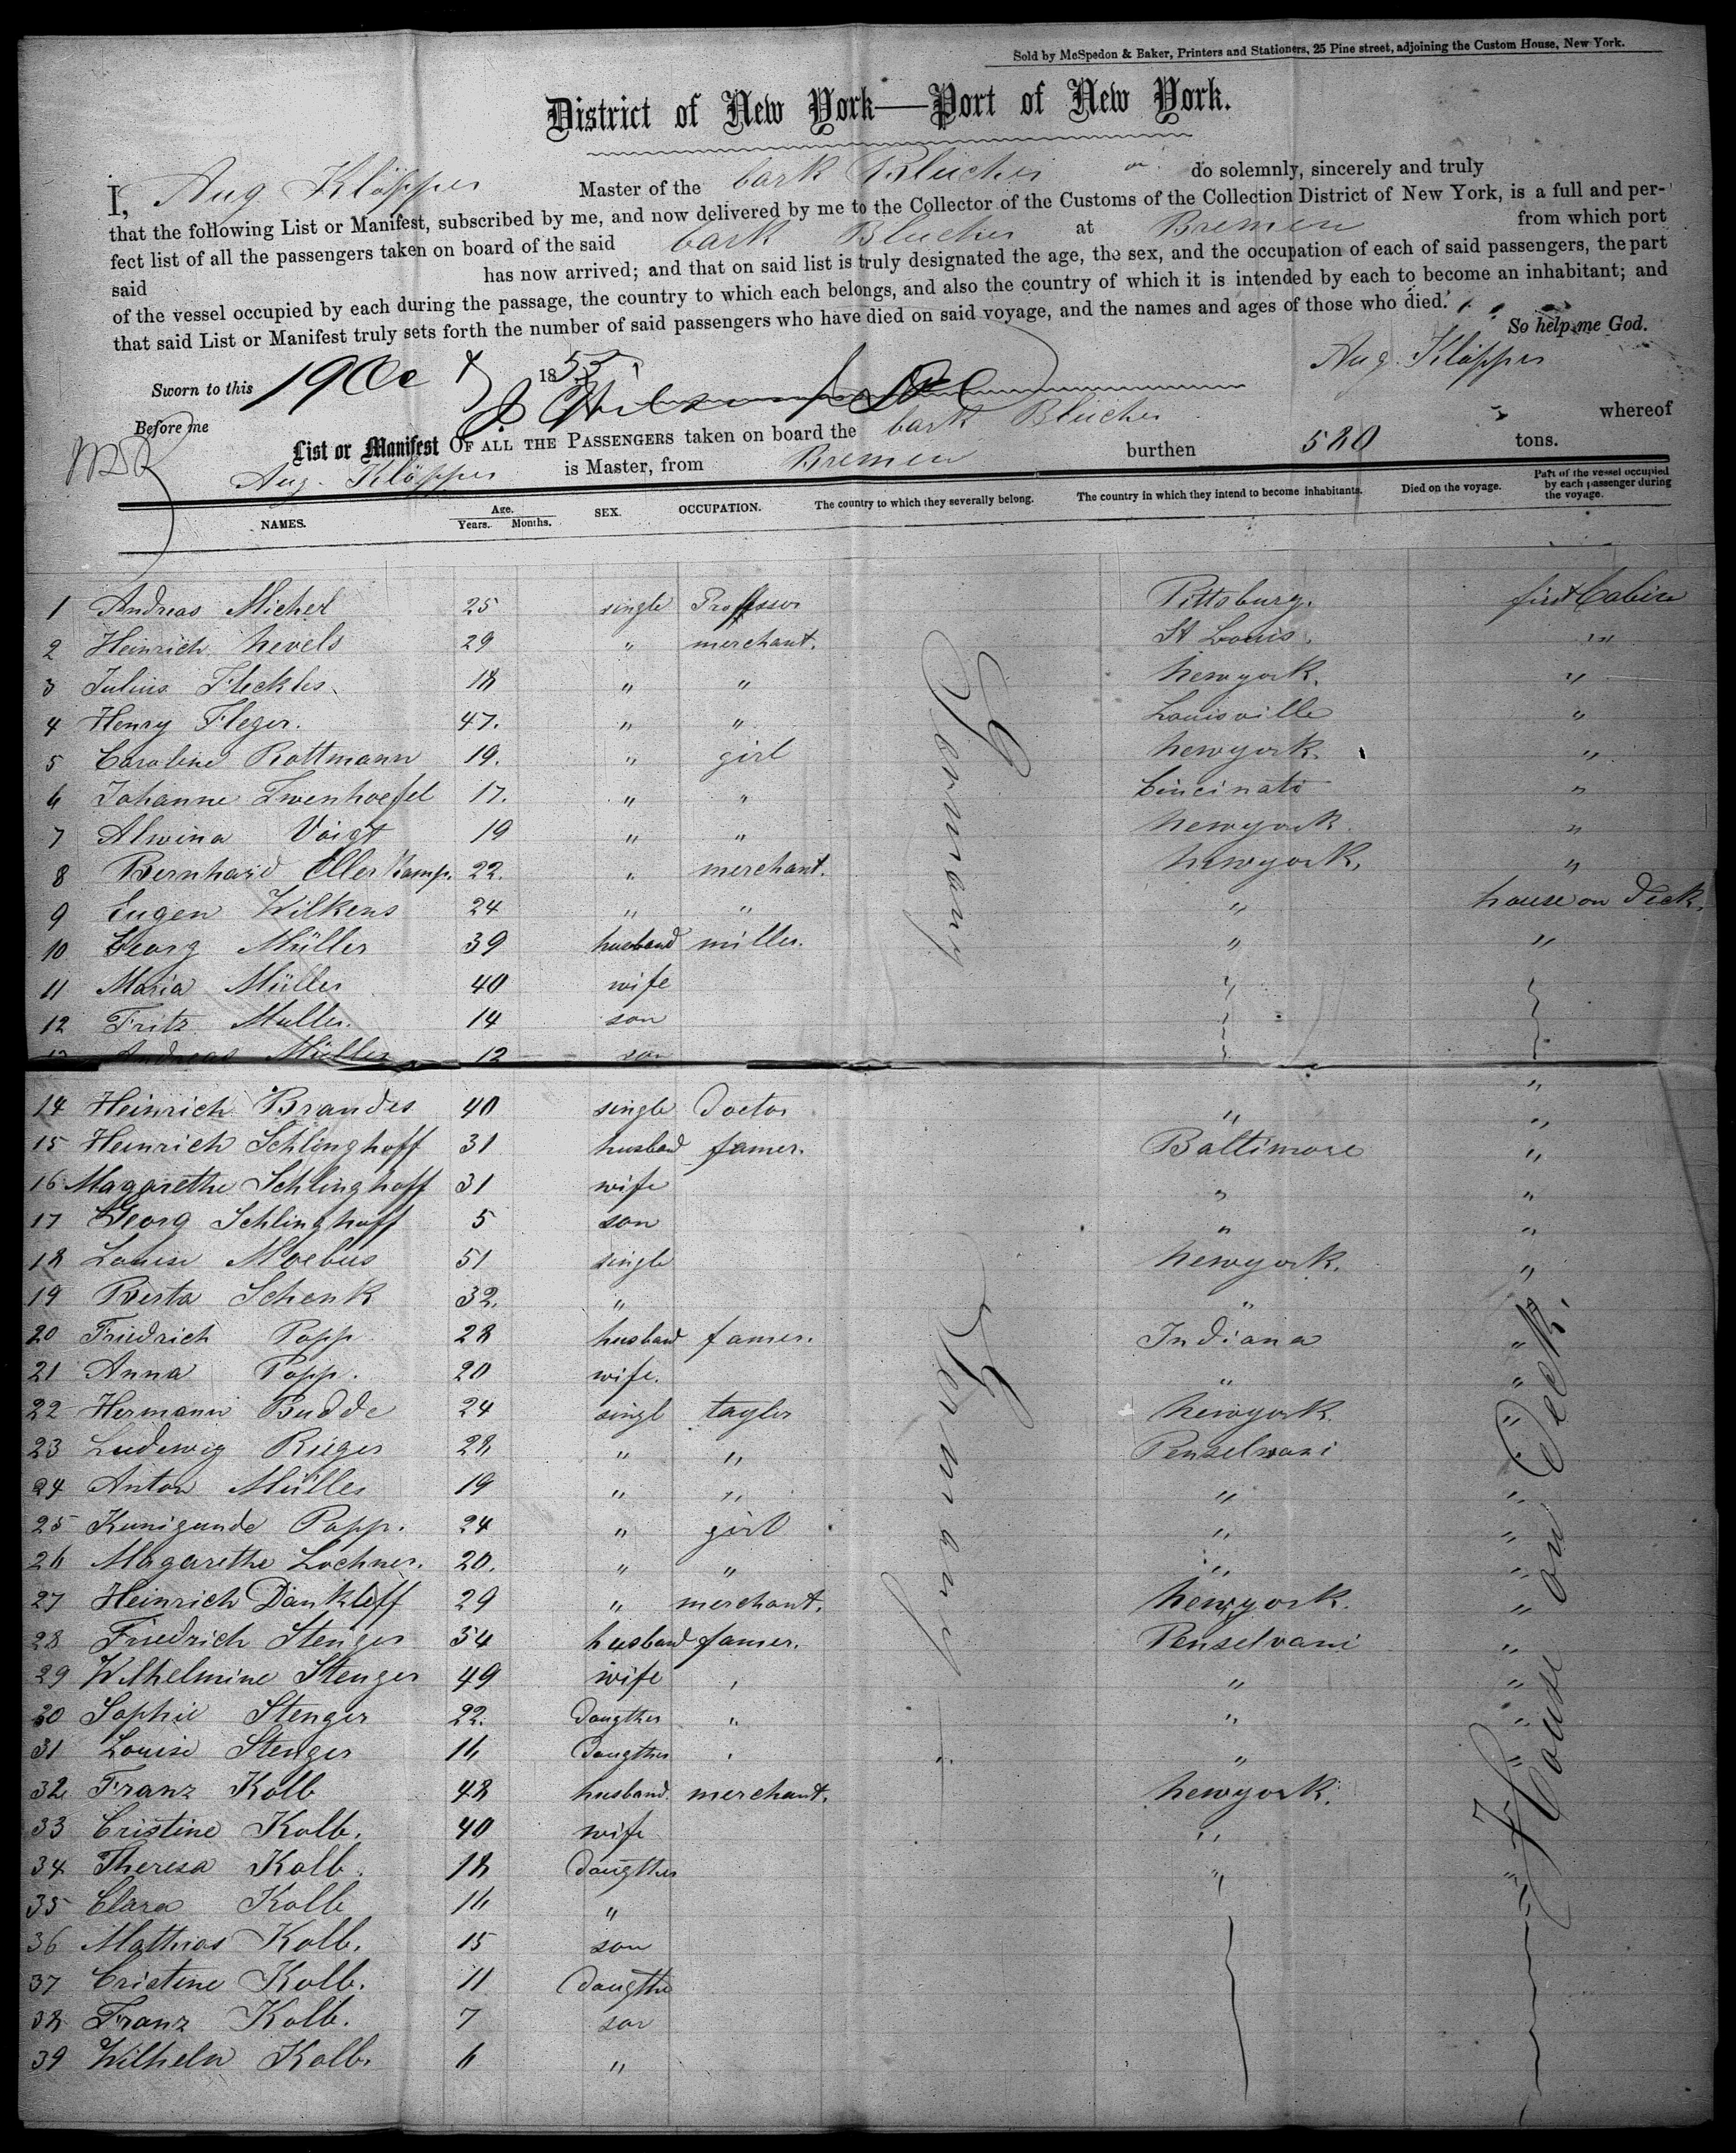 Sold by McSpedon & Baker, Printers and Stationers, 25 Pine street, adjoining the Custom House, New York.
District of New York—Port of New York.
I, Aug Klöpper Master of the bark Blücher do solemnly, sincerely and truly
that the following List or Manifest, subscribed by me, and now delivered by me to the Collector of the Customs of the Collection District of New York, is a full and per-
fect list of all the passengers taken on board of the said bark Blücher at Bremen from which port
said has now arrived; and that on said list is truly designated the age, the sex, and the occupation of each of said passengers, the part
of the vessel occupied by each during the passage, the country to which each belongs, and also the country of which it is intended by each to become an inhabitant; and
that said List or Manifest truly sets forth the number of said passengers who have died on said voyage, and the names and ages of those who died.
So help me God.
Sworn to this 19 1853 Aug. Klöpper
Before me
List or Manifest OF ALL THE PASSENGERS taken on board the bark Blücher whereof
Aug. Klöpper is Master, from Bremen burthen 580 tons.
NAMES. Age. Years. Months. SEX. OCCUPATION. The country to which they severally belong. The country in which they intend to become inhabitants. Died on the voyage. Part of the vessel occupied by each passenger during the voyage.
1 Andreas Michel 25 single Professor Pittsburg. first Cabin
2 Heinrich Nevels 29 " merchant. St Louis. "
3 Julius Fleckles. 18 " " Newyork. "
4 Henry Fleger. 47. " " Louisville "
5 Caroline Rottmann 19. " girl Newyork. "
6 Johanne Zwenhoefel 17. " " Cincinati "
7 Alwina Voigt 19 " " Newyork. "
8 Bernhard Ellerkamp. 22. " merchant. Newyork. "
9 Eugen Wilkens 24 " " " house on Deck.
10 Georg Müller 39 husband miller. " "
11 Maria Müller 40 wife "
12 Fritz Muller. 14 son
13 Andreas Müller 12 son
Germany
14 Heinrich Brandes 40 single Doctor " "
15 Heinrich Schlinghoff 31 husband famer. Baltimore "
16 Magarethe Schlinghoff 31 wife " "
17 Georg Schlinghoff 5 son " "
18 Louise Moebus 51 single Newyork. "
19 Berta Schenk 32. " "
20 Friedrich Popp 28 husband famer. Indiana "
21 Anna Popp. 20 wife. " "
22 Hermann Budde 24 singl tayler Newyork. "
23 Ludewig Rieger 28 " " Penselvani
24 Anton Müller 19 " " " "
25 Kunigunde Popp. 24 " girl " "
26 Magarethe Lochner. 20. " " " "
27 Heinrich Dankleff 29 " merchant. Newyork. "
28 Friedrich Stenger 54 husband famer. Penselvani "
29 Wilhelmine Stenger 49 wife " " "
30 Sophie Stenger 22. Daugther " " "
31 Louise Stenger 16 Daugther " " "
32 Franz Kolb 48 husband. merchant. Newyork.
33 Cristine Kolb. 40 wife "
34 Theresa Kolb. 18 Daugther " "
35 Clara Kolb 16 "
36 Mathias Kolb. 15 son
37 Cristine Kolb. 11 Daugthe
38 Franz Kolb. 7 son
39 Wilhelm Kolb. 6 "
Germany
House on Deck.